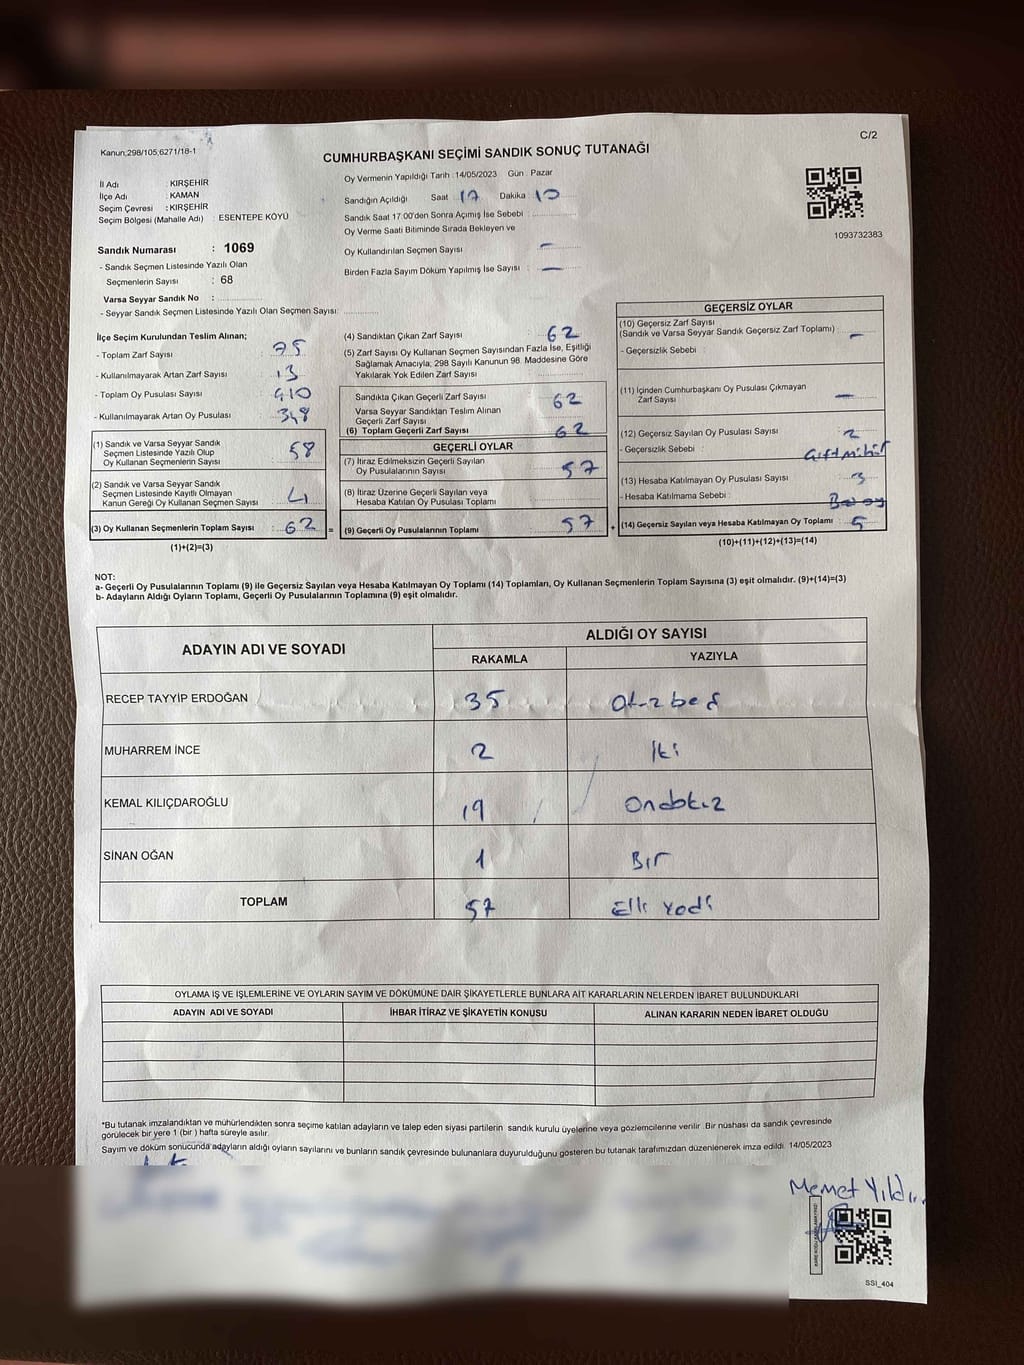 C/2
Kanun;298/105,6271/18-1
CUMHURBAŞKANI SEÇİMİ SANDIK SONUÇ TUTANAĞI
İl Adı : KIRŞEHİR
İlçe Adı : KAMAN
Seçim Çevresi : KIRŞEHİR
Seçim Bölgesi (Mahalle Adı) : ESENTEPE KÖYÜ
Oy Vermenin Yapıldığı Tarih : 14/05/2023 Gün : Pazar
Sandığın Açıldığı Saat 17 Dakika : 10
Sandık Saat 17:00'den Sonra Açımış İse Sebebi :
Oy Verme Saati Bitiminde Sırada Bekleyen ve
Oy Kullandırılan Seçmen Sayısı : —
Birden Fazla Sayım Döküm Yapılmış İse Sayısı : —
1093732383
Sandık Numarası : 1069
- Sandık Seçmen Listesinde Yazılı Olan
Seçmenlerin Sayısı : 68
Varsa Seyyar Sandık No :
- Seyyar Sandık Seçmen Listesinde Yazılı Olan Seçmen Sayısı:
İlçe Seçim Kurulundan Teslim Alınan;
- Toplam Zarf Sayısı : 75
- Kullanılmayarak Artan Zarf Sayısı : 13
- Toplam Oy Pusulası Sayısı : 410
- Kullanılmayarak Artan Oy Pusulası : 348
(1) Sandık ve Varsa Seyyar Sandık
Seçmen Listesinde Yazılı Olup
Oy Kullanan Seçmenlerin Sayısı : 58
(2) Sandık ve Varsa Seyyar Sandık
Seçmen Listesinde Kayıtlı Olmayan
Kanun Gereği Oy Kullanan Seçmen Sayısı : 4
(3) Oy Kullanan Seçmenlerin Toplam Sayısı : 62
(1)+(2)=(3)
(4) Sandıktan Çıkan Zarf Sayısı : 62
(5) Zarf Sayısı Oy Kullanan Seçmen Sayısından Fazla İse, Eşitliği
Sağlamak Amacıyla; 298 Sayılı Kanunun 98. Maddesine Göre
Yakılarak Yok Edilen Zarf Sayısı :
Sandıkta Çıkan Geçerli Zarf Sayısı : 62
Varsa Seyyar Sandıktan Teslim Alınan
Geçerli Zarf Sayısı :
(6) Toplam Geçerli Zarf Sayısı : 62
GEÇERLİ OYLAR
(7) İtiraz Edilmeksizin Geçerli Sayılan
Oy Pusulalarının Sayısı : 57
(8) İtiraz Üzerine Geçerli Sayılan veya
Hesaba Katılan Oy Pusulası Toplamı :
= (9) Geçerli Oy Pusulalarının Toplamı : 57
GEÇERSİZ OYLAR
(10) Geçersiz Zarf Sayısı
(Sandık ve Varsa Seyyar Sandık Geçersiz Zarf Toplamı) : —
- Geçersizlik Sebebi :
(11) İçinden Cumhurbaşkanı Oy Pusulası Çıkmayan
Zarf Sayısı : —
(12) Geçersiz Sayılan Oy Pusulası Sayısı : 2
- Geçersizlik Sebebi : Çift mühür
(13) Hesaba Katılmayan Oy Pusulası Sayısı : 3
- Hesaba Katılmama Sebebi :
+ (14) Geçersiz Sayılan veya Hesaba Katılmayan Oy Toplamı : 5
(10)+(11)+(12)+(13)=(14)
NOT:
a- Geçerli Oy Pusulalarının Toplamı (9) ile Geçersiz Sayılan veya Hesaba Katılmayan Oy Toplamı (14) Toplamları, Oy Kullanan Seçmenlerin Toplam Sayısına (3) eşit olmalıdır. (9)+(14)=(3)
b- Adayların Aldığı Oyların Toplamı, Geçerli Oy Pusulalarının Toplamına (9) eşit olmalıdır.
ADAYIN ADI VE SOYADI ALDIĞI OY SAYISI
RAKAMLA YAZIYLA
RECEP TAYYİP ERDOĞAN 35 Otuzbeş
MUHARREM İNCE 2 İki
KEMAL KILIÇDAROĞLU 19 Ondokuz
SİNAN OĞAN 1 Bir
TOPLAM 57 Elli Yedi
OYLAMA İŞ VE İŞLEMLERİNE VE OYLARIN SAYIM VE DÖKÜMÜNE DAİR ŞİKAYETLERLE BUNLARA AİT KARARLARIN NELERDEN İBARET BULUNDUKLARI
ADAYIN ADI VE SOYADI İHBAR İTİRAZ VE ŞİKAYETİN KONUSU ALINAN KARARIN NEDEN İBARET OLDUĞU
*Bu tutanak imzalandıktan ve mühürlendikten sonra seçime katılan adayların ve talep eden siyasi partilerin sandık kurulu üyelerine veya gözlemcilerine verilir. Bir nüshası da sandık çevresinde
görülecek bir yere 1 (bir) hafta süreyle asılır.
Sayım ve döküm sonucunda adayların aldığı oyların sayılarını ve bunların sandık çevresinde bulunanlara duyurulduğunu gösteren bu tutanak tarafımızdan düzenlenerek imza edildi. 14/05/2023
Memet
SSI_404